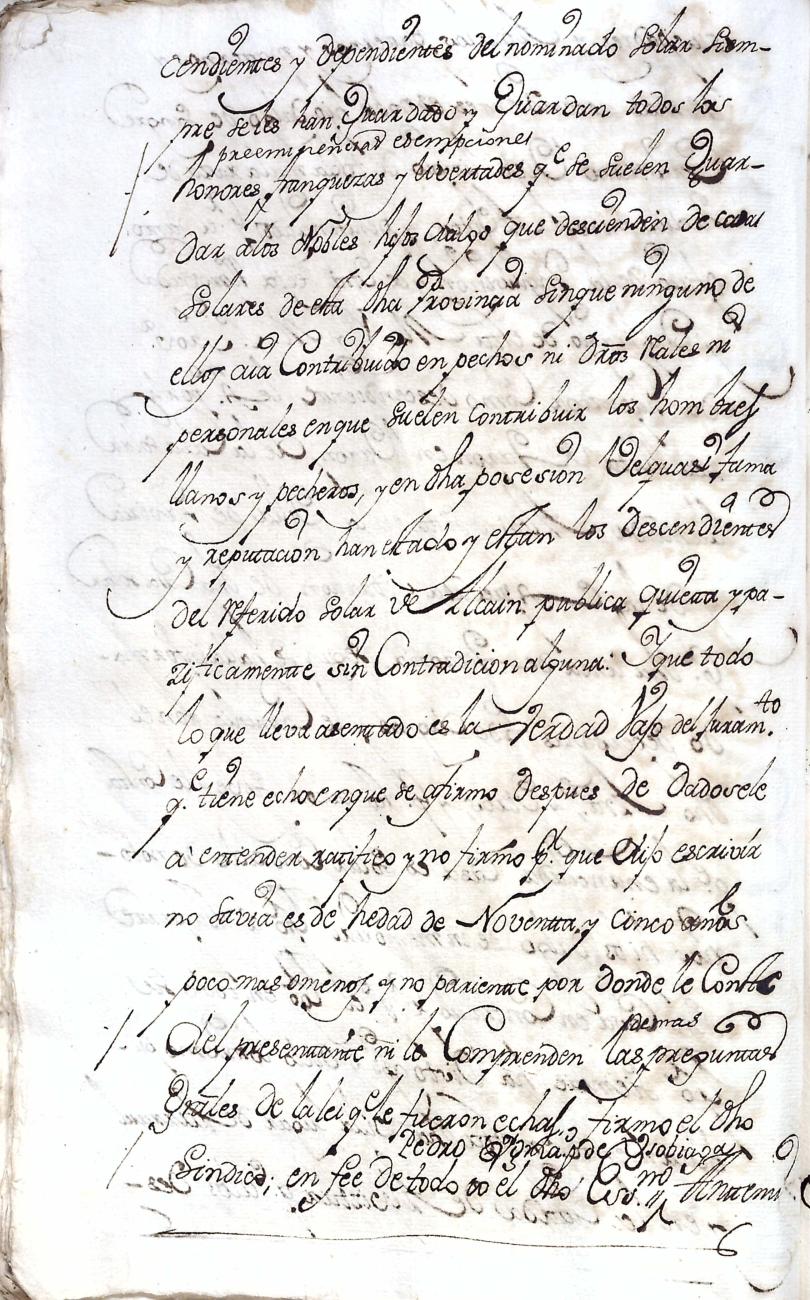 cendientes y dependientes del nominado Solar siem-
pre se les han Guardado y Guardan todos los
preeminencias esempciones
honores franquezas y livertades q.e se suelen Guar-
dar a los Nobles hijos dalgo que descienden de casas
Solares de esta dha Provincia sin que ninguno de
ellos aia Contribuido en pechos ni dros Reales ni
personales en que suelen contribuir los hombres
llanos y pecheros, y en dha posesion Velquasi fama
y reputacion han estado y estan los descendientes
del referido Solar de Alcain publica quietta y pa-
zificamente sin Contradicion alguna: Y que todo
lo que lleva asentado es la Verdad vajo del Juram.to
q.e tiene echo en que se afirmo despues de dadosele
a entender ratifico y no firmo p.r que dijo escrivir
no savia es de hedad de Noventta y cinco años
poco mas omenos y no pariente por donde le Conste
demas
del presentante ni le Comprenden las preguntas
Grales de la lei q.e le fueron echas, firmo el dho
Pedro de Ysobiaga
Sindico; en fee de todo io el dho Ess.no Antemi